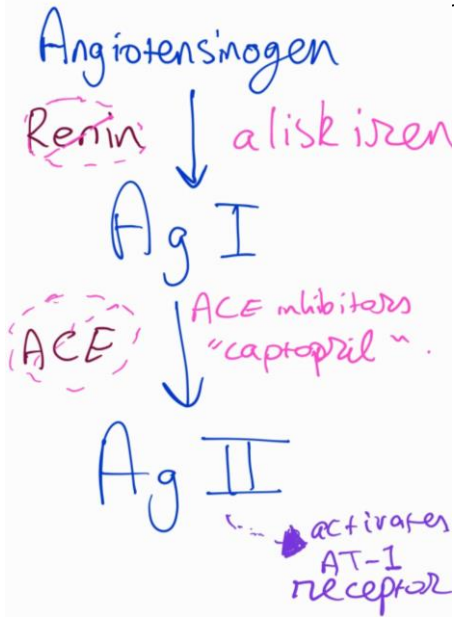 Angiotensinogen
Renin aliskiren
Ag I
ACE inhibitors
ACE "captopril".
Ag II
activates
AT-1
receptor